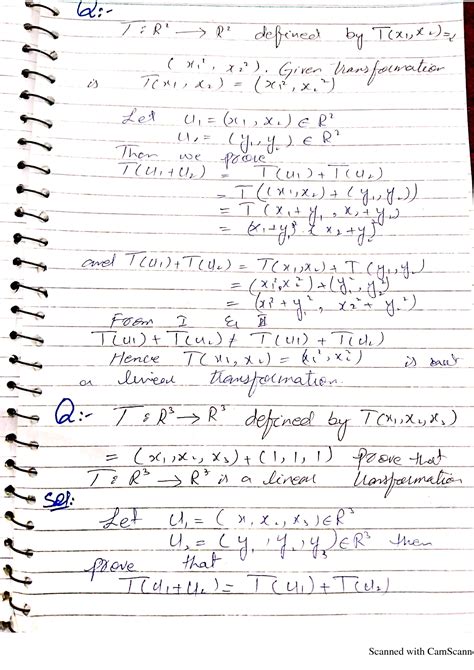 Q:-
T: R² → R² defined by T(x₁, x₂) =
(x₁², x₂²). Given transformation
is T(x₁, x₂) = (x₁², x₂²)
Let u₁ = (x₁, x₂) ∈ R²
u₂ = (y₁, y₂) ∈ R²
Then we prove
T(u₁+u₂) = T(u₁) + T(u₂)
= T((x₁, x₂) + (y₁, y₂))
= T(x₁+y₁, x₂+y₂)
= (x₁+y₁)², (x₂+y₂)²
and T(u₁)+T(u₂) = T(x₁, x₂) + T(y₁, y₂)
= (x₁², x₂²) + (y₁², y₂²)
= (x₁²+y₁², x₂²+y₂²)
From I & II
T(u₁)+T(u₂) ≠ T(u₁) + T(u₂)
Hence T(x₁, x₂) = (x₁², x₂²) is
a linear transformation.
Q:- T: R³ → R³ defined by T(x₁, x₂, x₃)
= (x₁, x₂, x₃) + (1, 1, 1) prove that
T: R³ → R³ is a linear transformation
Sol:
Let u₁ = (x₁, x₂, x₃) ∈ R³
u₂ = (y₁, y₂, y₃) ∈ R³ then
prove that
T(u₁+u₂) = T(u₁) + T(u₂)
Scanned with CamScann